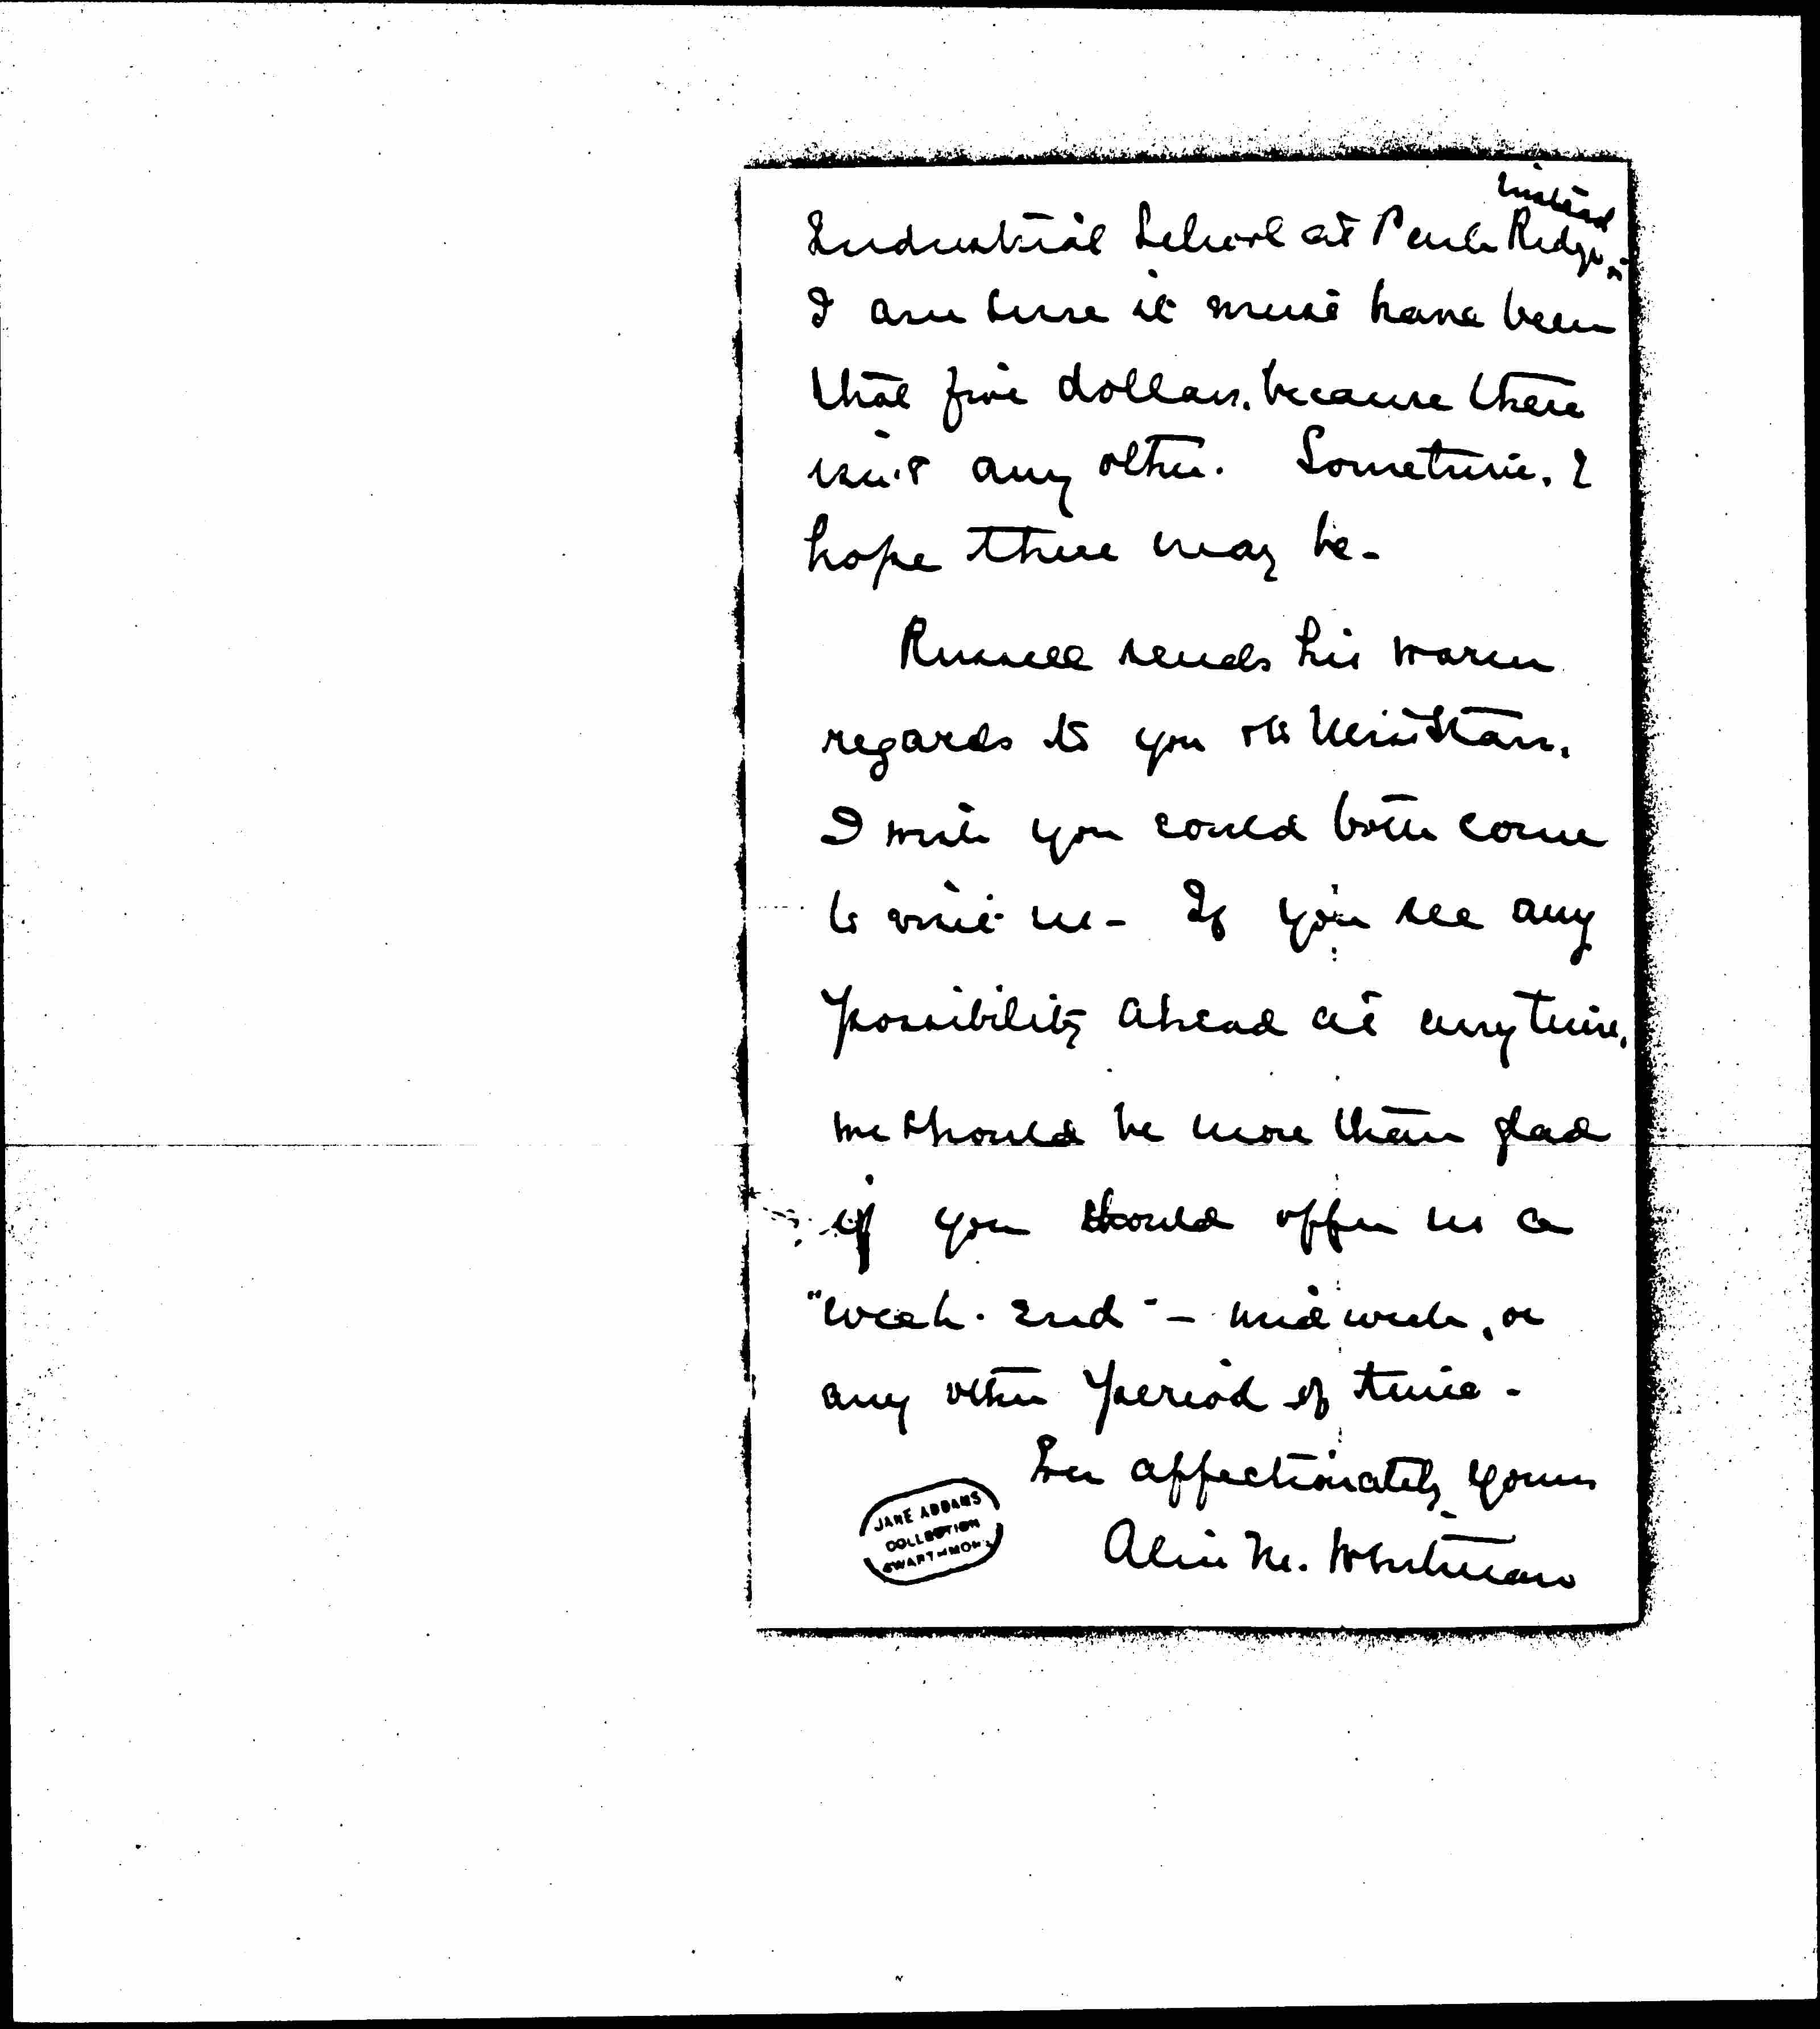 instead
Industrial School at Park Ridge.
I am sure it must have been
that five dollars, because there
isn't any other. Sometime, I
hope there may be -
Russell sends his warm
regards to you & to Miss Starr.
I wish you could both come
to visit us - If you see any
possibility ahead at any time,
we should be more than glad
if you should offer us a
"week-end" - mid week, or
any other period of time -
Ever affectionately yours
Alice M. Whitman
JANE ADDAMS
COLLECTION
SWARTHMORE